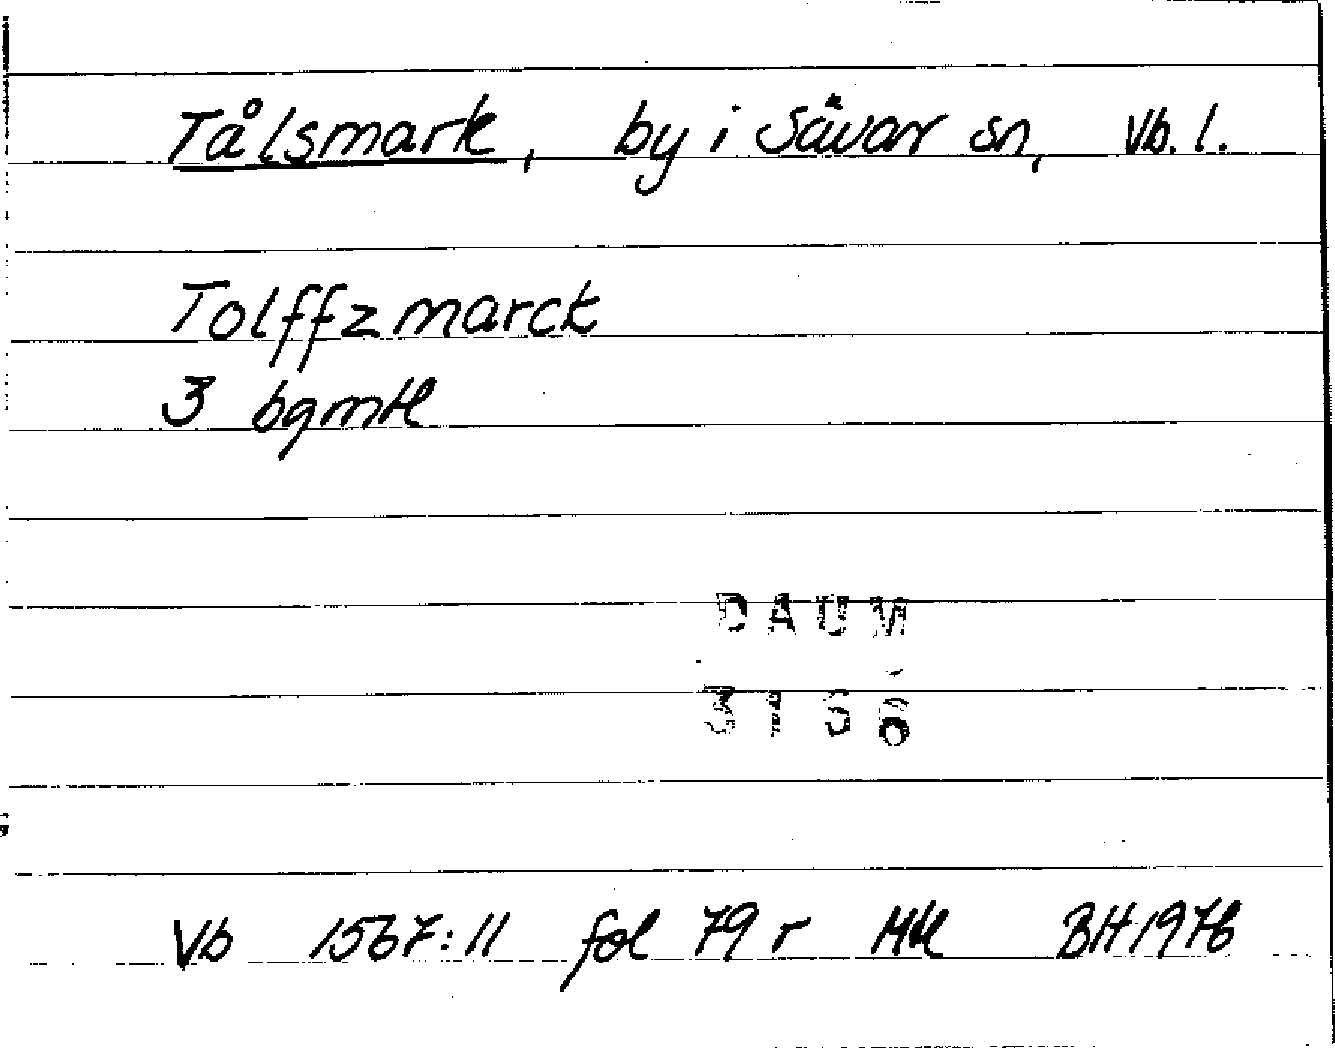 Tålsmark, by i Sävar sn, Vb. l.
Tolffzmarck
3 bgmtl
DAUM
3156
Vb 1567:11 fol 79 r Mtl BH 1976